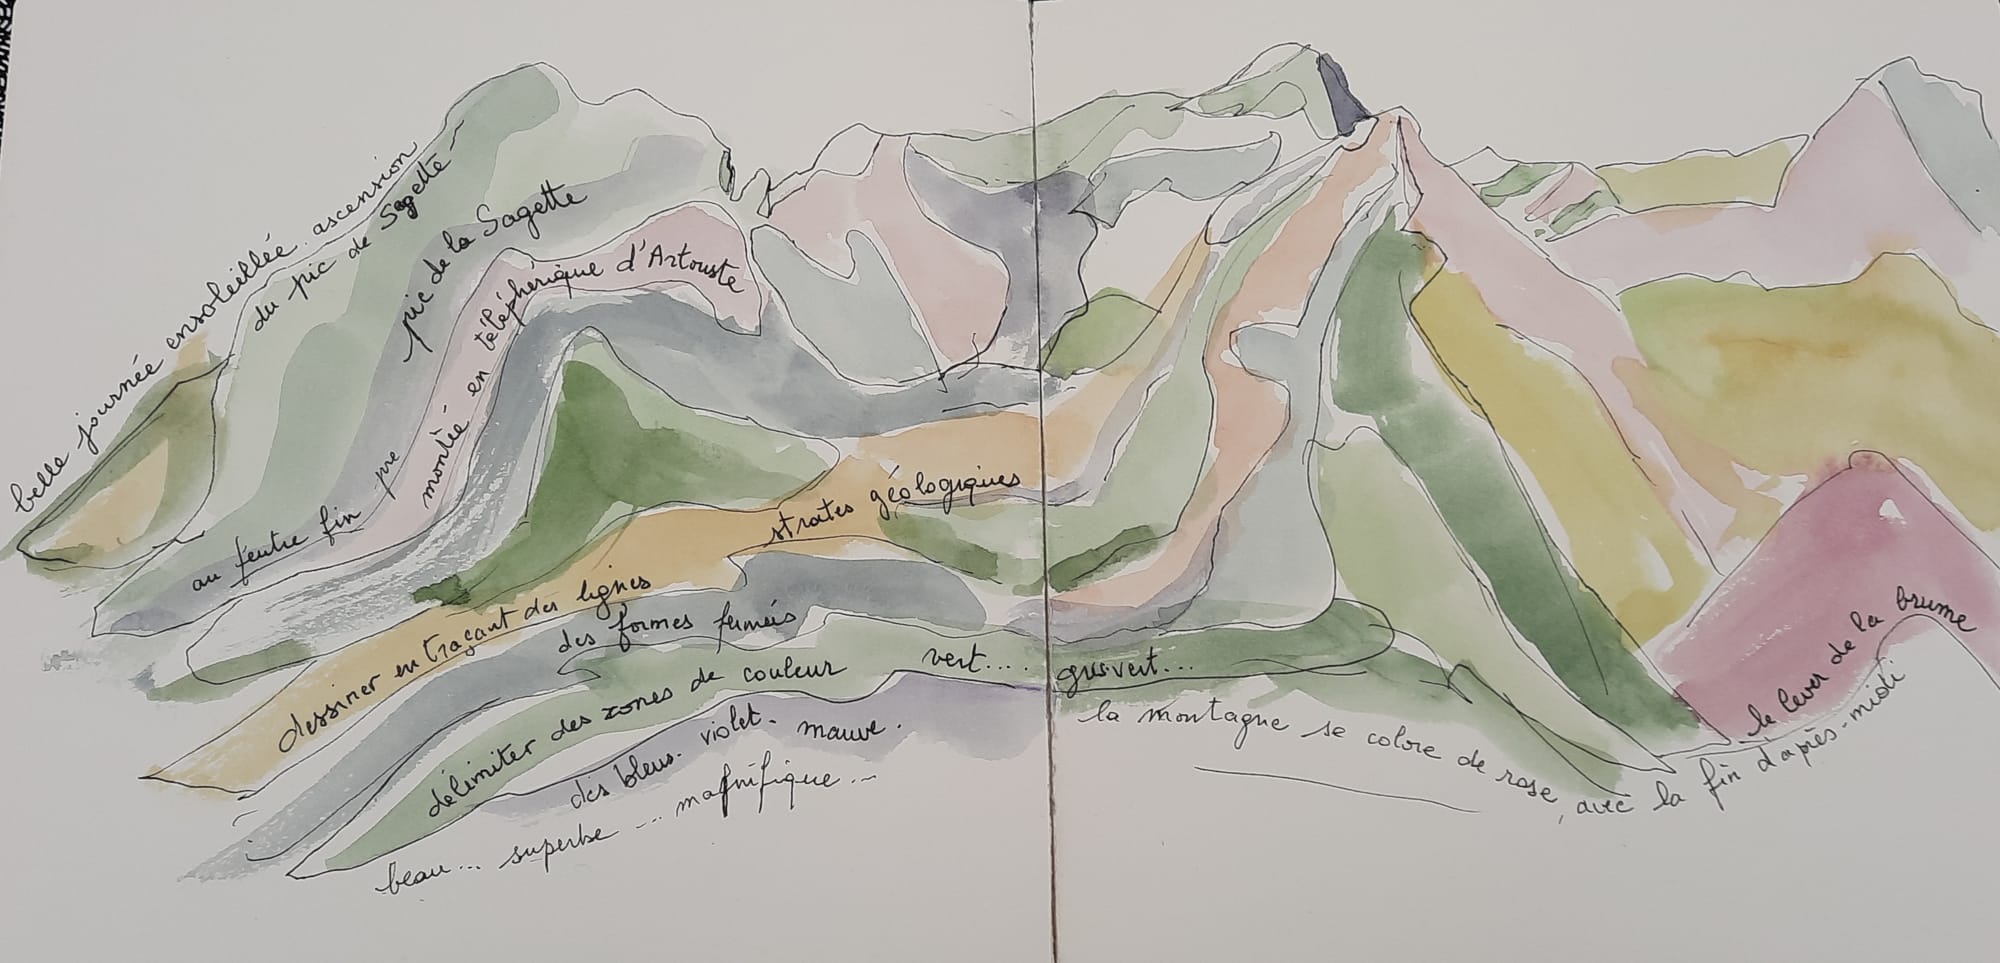 belle journée ensoleillée. ascension
du pic de Sagette ~
pic de la Sagette
montée en téléphérique d'Artouste
au feutre fin
strates géologiques
dessiner en traçant des lignes
des formes fermées
délimiter des zones de couleur vert.... grisvert...
des bleus. violet. mauve.
beau... superbe --- magnifique ---
la montagne se colore de rose, avec la fin d'après-midi
le lever de la brume